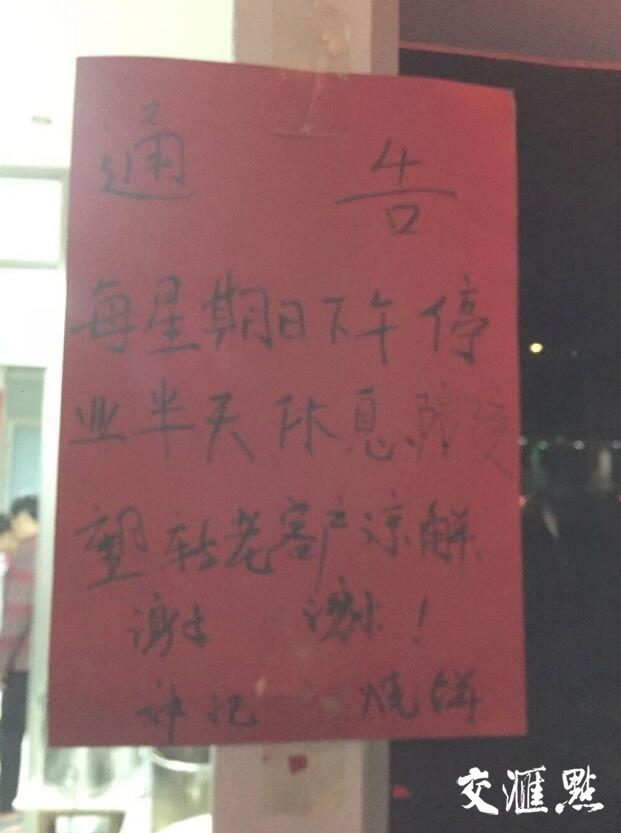 通 告
每星期日下午停
业半天休息、陪孩
望老客户凉解、
谢 谢！
许记 烧饼
交滙點